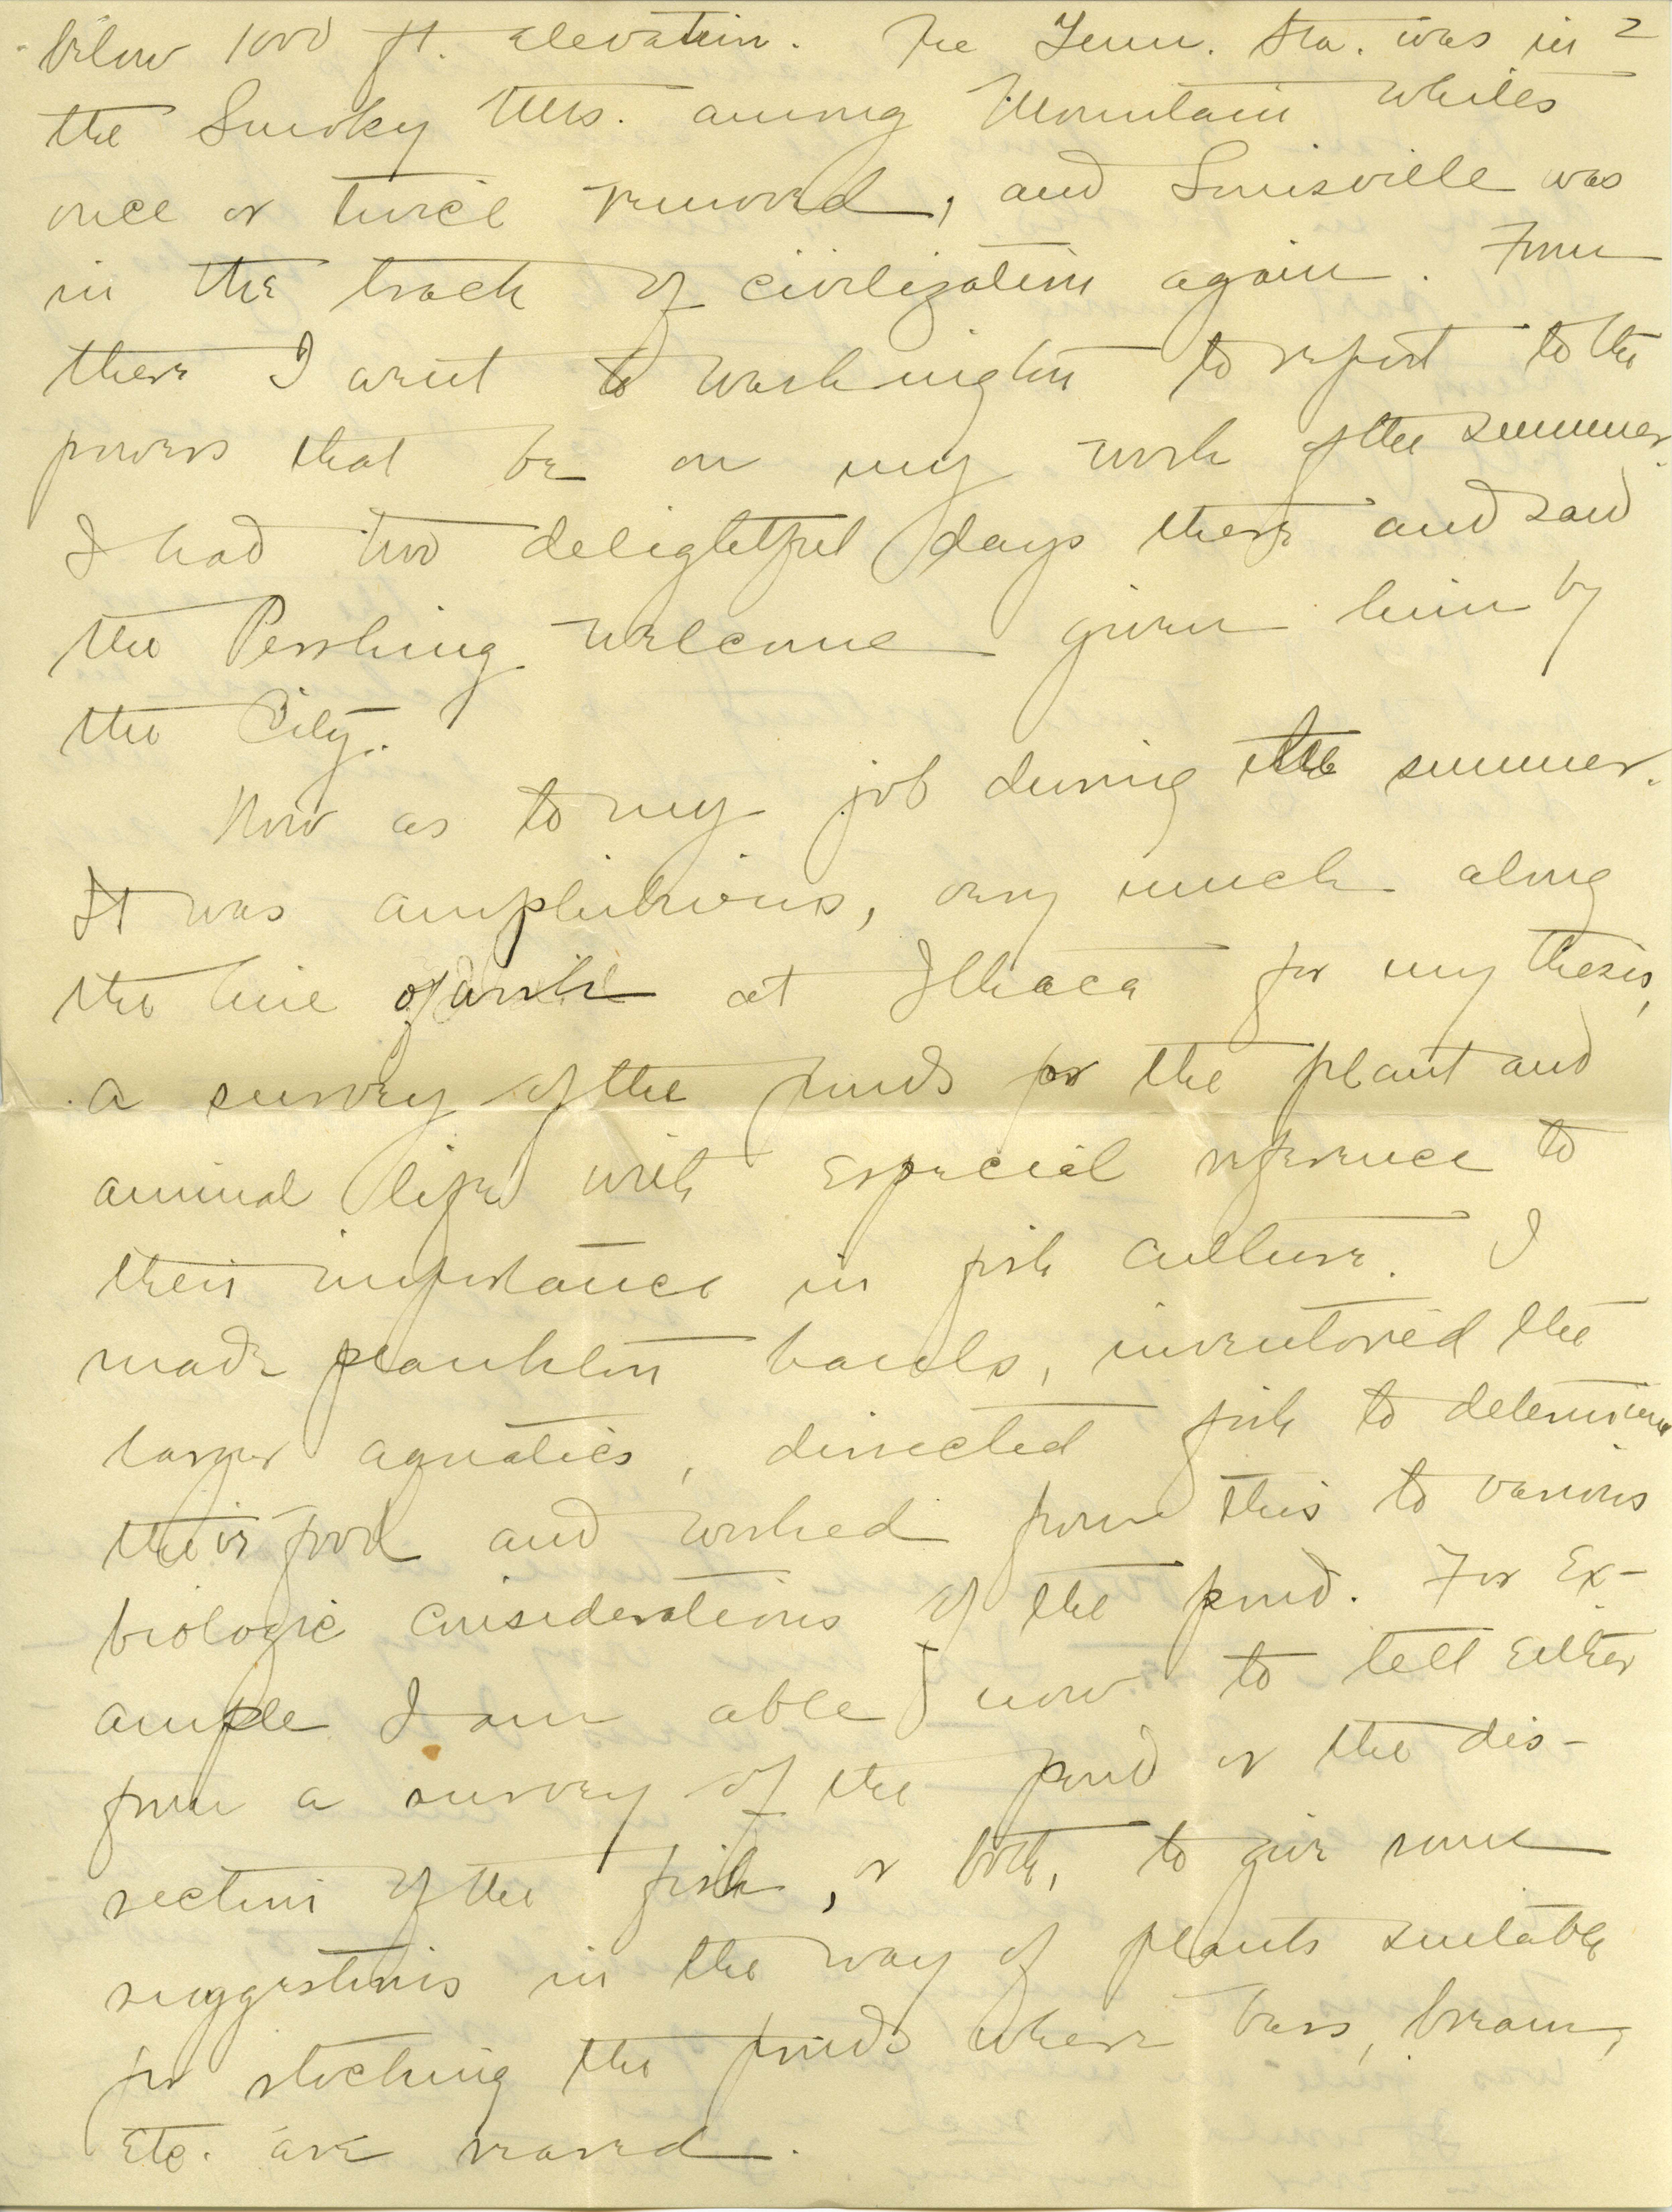 below 1000 ft. elevation. The Tenn. Sta. was in 2
the Smoky Mts. among Mountain Whites
once or twice removed, and Louisville was
in the track of civilization again. From
there I went to Washington to report to the
powers that be on my work of the summer.
I had two delightful days there and saw
the Pershing welcome given him by
the City.
Now as to my job during the summer.
It was amphibious, very much along
the line of work at Ithaca for my thesis,
a survey of the ponds for the plant and
animal life with especial reference to
their importance in fish culture. I
made plankton hauls, inventoried the
larger aquatics, dissected fish to determine
their food and worked from this to various
biologic considerations of the pond. For ex-
ample I am able now to tell either
from a survey of the pond or the dis-
section of the fish, or both, to give some
suggestions in the way of plants suitable
for stocking the ponds where bass, bream,
etc. are reared.